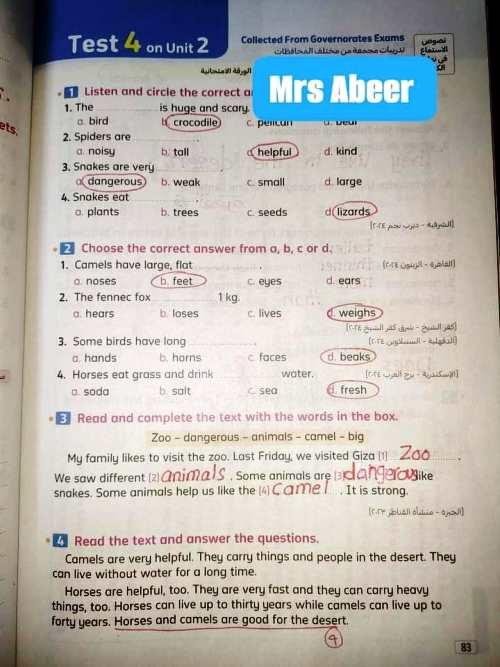 Test 4 on Unit 2
Collected From Governorates Exams
تدريبات مجمعة من مختلف المحافظات
نصوص
الاستماع
الورقة الامتحانية
Mrs Abeer
1 Listen and circle the correct
1. The is huge and scary.
a. bird b. crocodile c. pelican d. bear
2. Spiders are
a. noisy b. tall c. helpful d. kind
3. Snakes are very
a. dangerous b. weak c. small d. large
4. Snakes eat
a. plants b. trees c. seeds d. lizards
[الشرقية - ديرب نجم ٢٠٢٤]
2 Choose the correct answer from a, b, c or d.
1. Camels have large, flat .
[القاهرة - الزيتون ٢٠٢٤]
a. noses b. feet c. eyes d. ears
2. The fennec fox 1 kg.
a. hears b. loses c. lives d. weighs
[كفر الشيخ - شرق كفر الشيخ ٢٠٢٤]
3. Some birds have long .
[الدقهلية - السنبلاوين ٢٠٢٤]
a. hands b. horns c. faces d. beaks
4. Horses eat grass and drink water.
[الإسكندرية - برج العرب ٢٠٢٤]
a. soda b. salt c. sea d. fresh
3 Read and complete the text with the words in the box.
Zoo – dangerous – animals – camel – big
My family likes to visit the zoo. Last Friday, we visited Giza (1) Zoo .
We saw different (2) animals . Some animals are (3) dangerous like
snakes. Some animals help us like the (4) camel . It is strong.
[الجيزة - منشأة القناطر ٢٠٢٣]
4 Read the text and answer the questions.
Camels are very helpful. They carry things and people in the desert. They
can live without water for a long time.
Horses are helpful, too. They are very fast and they can carry heavy
things, too. Horses can live up to thirty years while camels can live up to
forty years. Horses and camels are good for the desert.
4
83